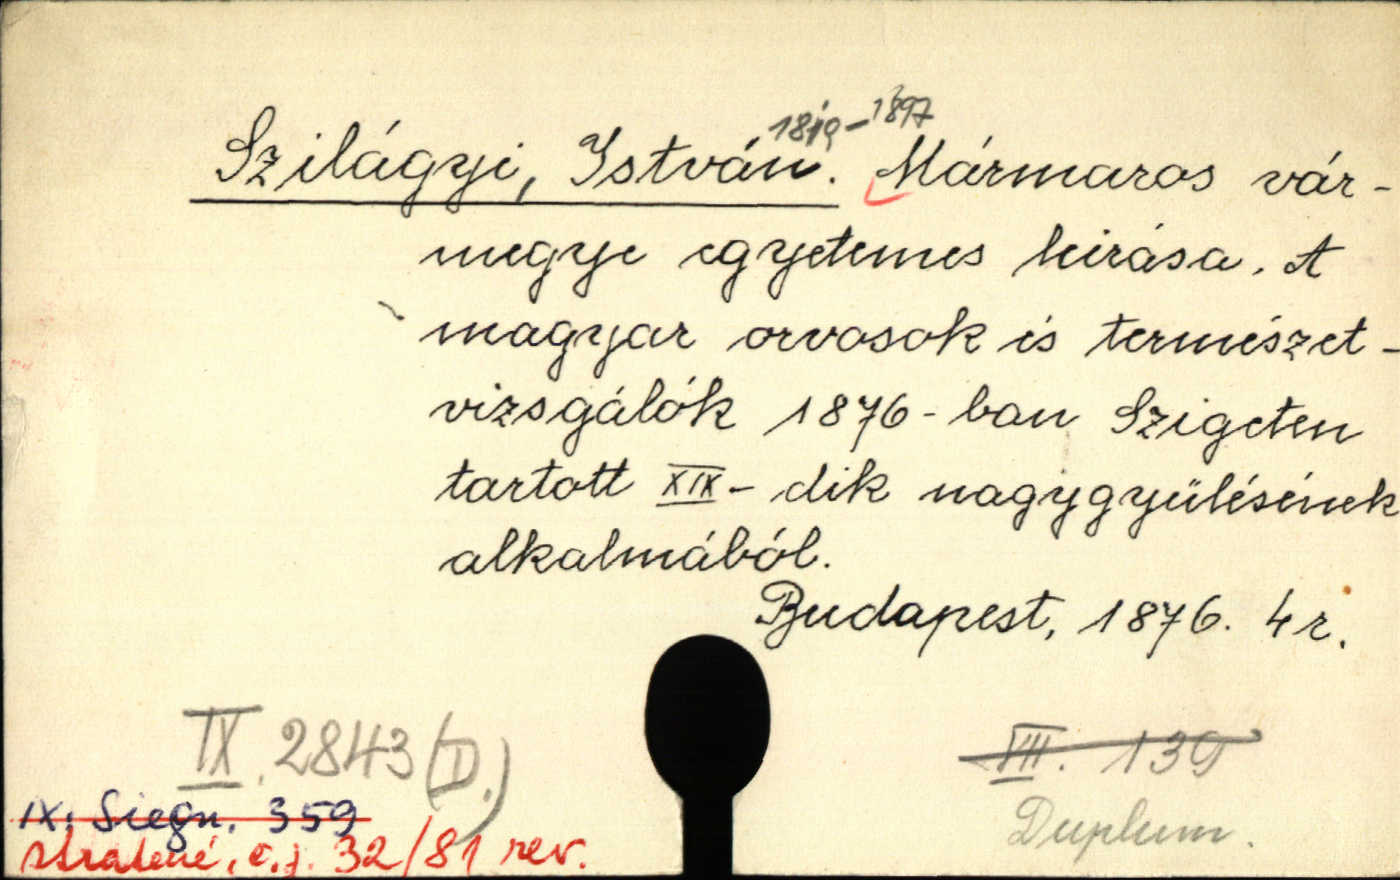 1819-1897
Szilágyi, István. Mármaros vár-
megye egyetemes leirása. A
magyar orvosok és természet-
vizsgálók 1876-ban Szigeten
tartott XIX-dik nagygyülésének
alkalmából.
Budapest, 1876. 4r.
IX. 2843 (D.)
VIII. 139
IX. Siegn. 359
Duplum.
stratené, č.j. 32/81 rev.